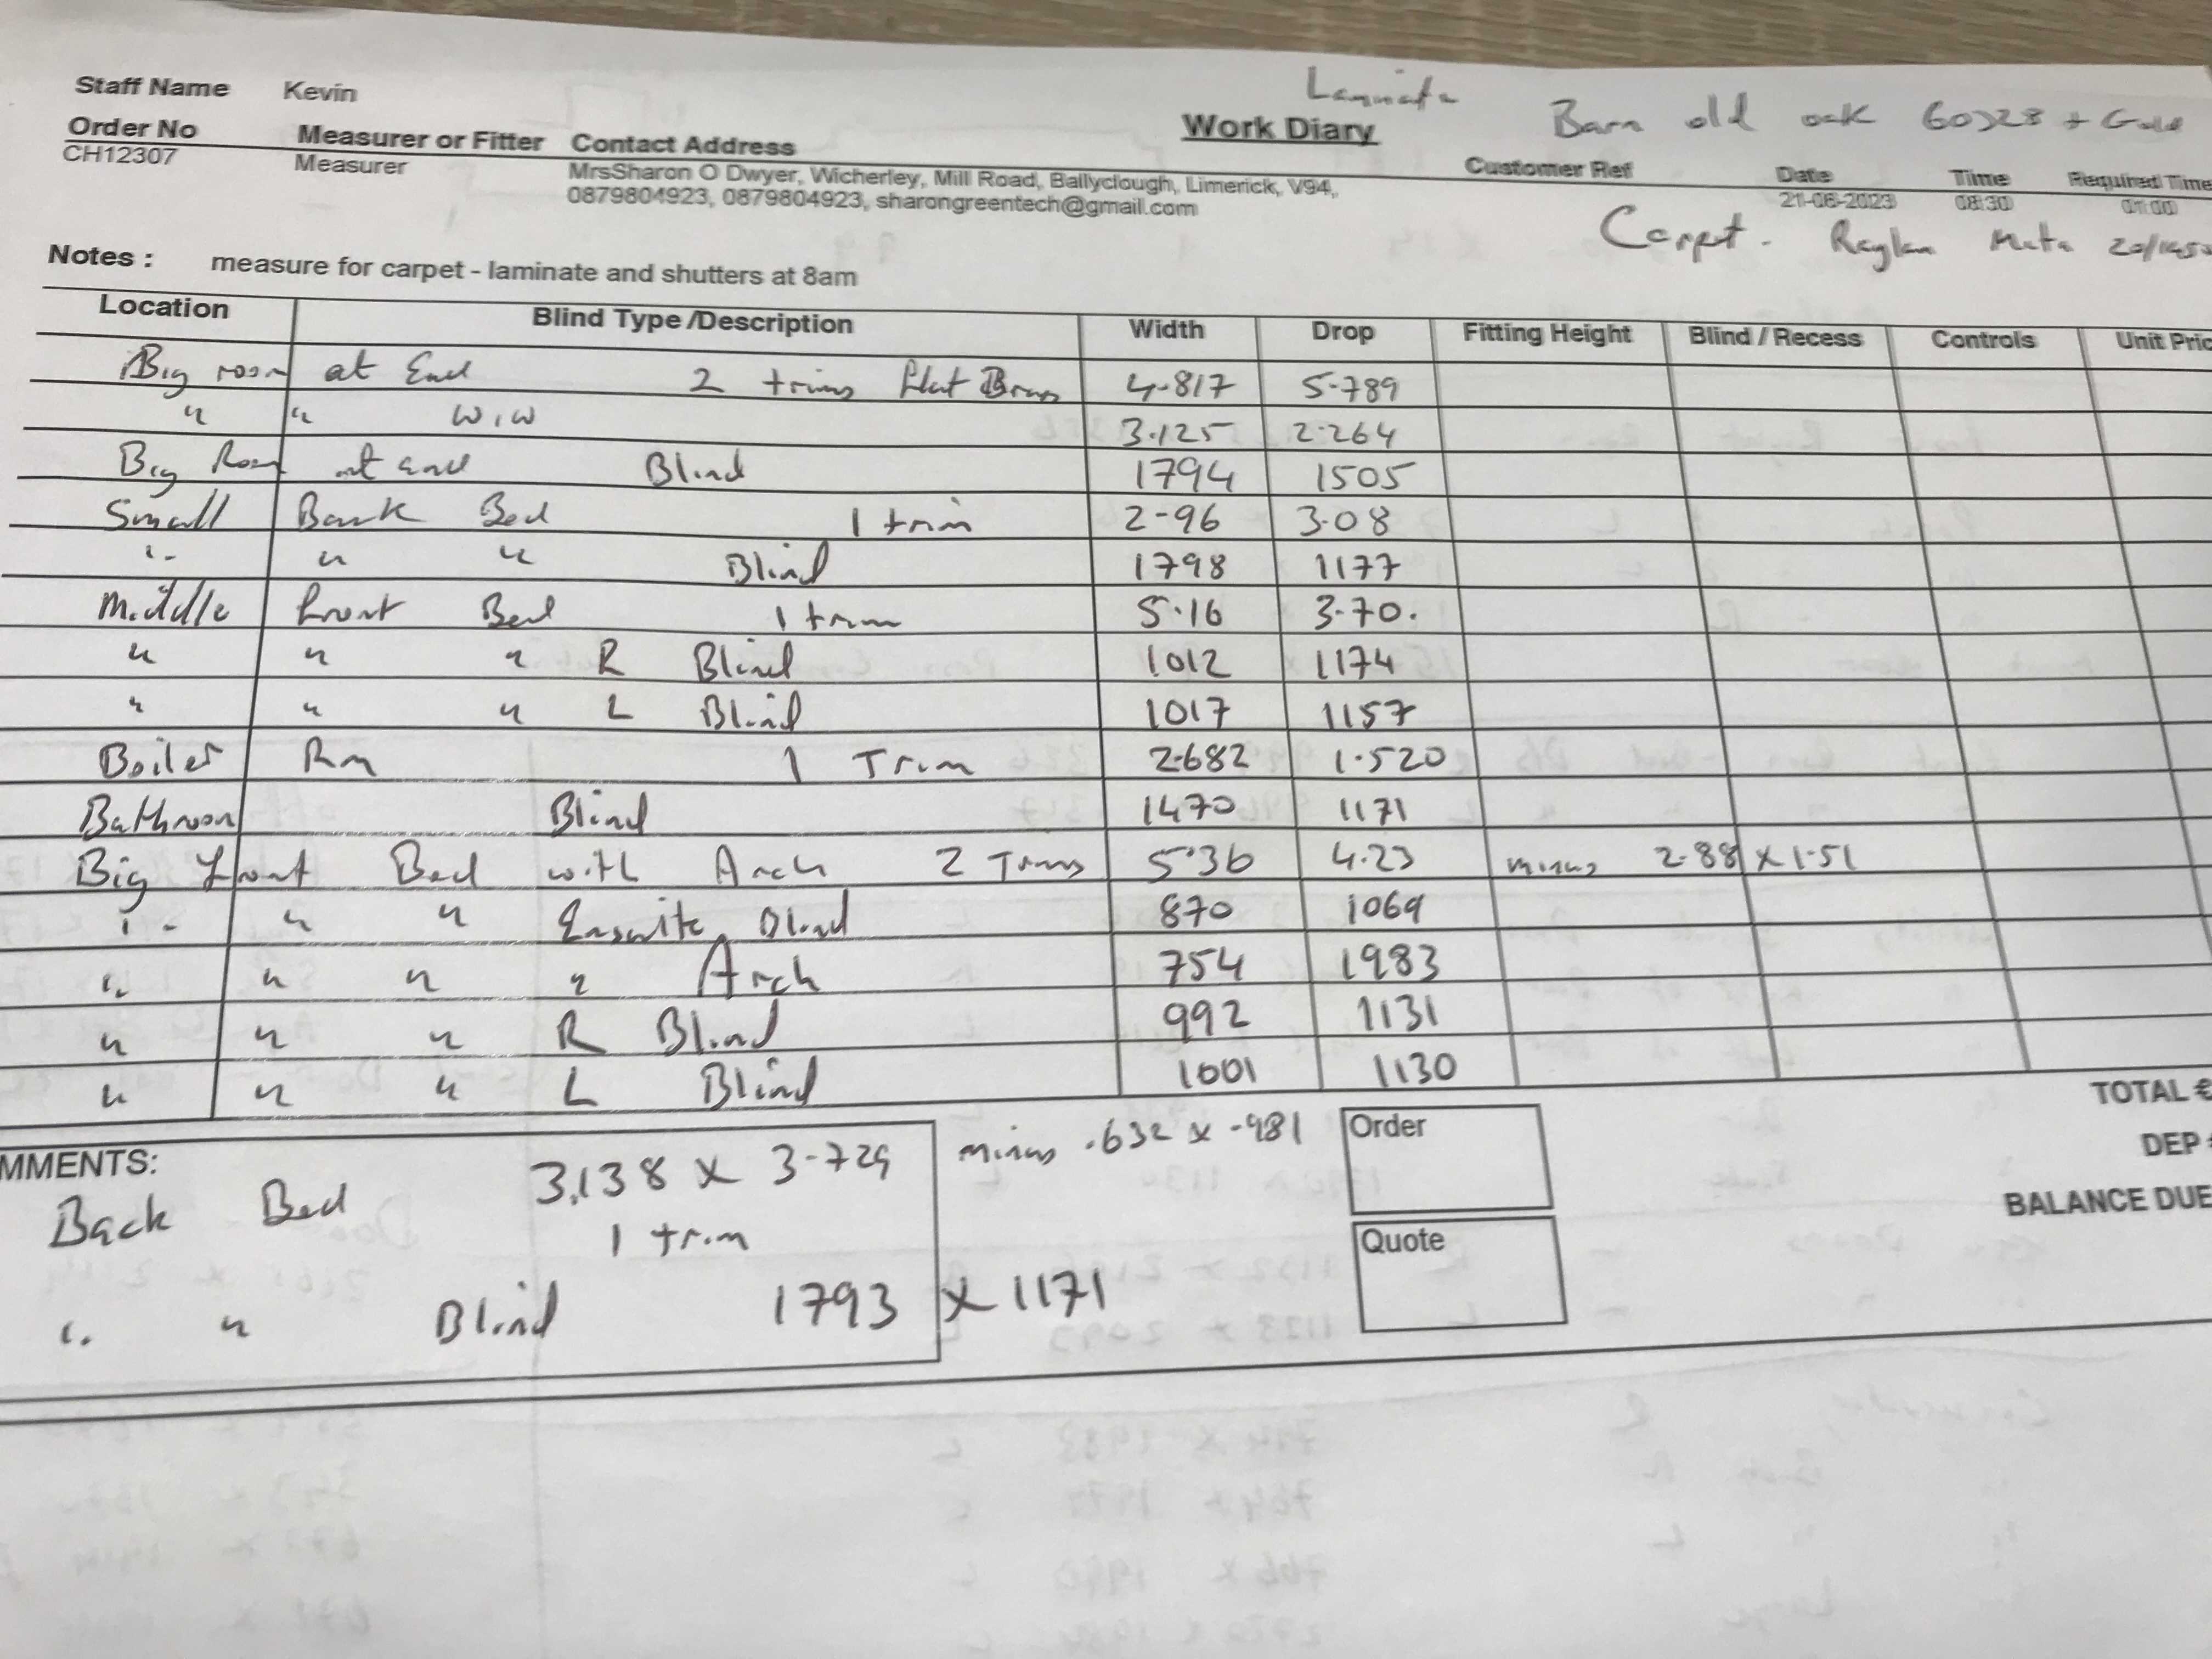 Staff Name Kevin
Laminate Barn old oak 60328 + Gold
Work Diary
Order No Measurer or Fitter Contact Address Customer Ref Date Time Required Time
CH12307 Measurer MrsSharon O Dwyer, Wicherley, Mill Road, Ballyclough, Limerick, V94, 21-06-2023 08:30 01:00
0879804923, 0879804923, sharongreentech@gmail.com
Carpet - Raglan
Notes : measure for carpet - laminate and shutters at 8am
Location Blind Type /Description Width Drop Fitting Height Blind / Recess Controls Unit Pric
Big room at End 2 trims flat Brass 4.817 5.789
" " W.W 3.125 2.264
Big Room at end Blind 1794 1505
Small Back Bed 1 trim 2-96 3.08
" " " Blind 1798 1177
Middle front Bed 1 trim 5.16 3-70.
" " " R Blind 1012 1174
" " " L Blind 1017 1157
Boiler Rm 1 Trim 2.682 1.520
Bathroom Blind 1470 1171
Big front Bed with Arch 2 Trims 5.36 4.23 minus 2.88 x 1.51
" " " Ensuite Blind 870 1069
" " " " Arch 754 1983
" " " R Blind 992 1131
" " " L Blind 1001 1130
MMENTS: TOTAL €
Back Bed 3.138 x 3-729 minus .632 x .981 Order DEP
1 trim BALANCE DUE
" " Blind 1793 x 1171 Quote